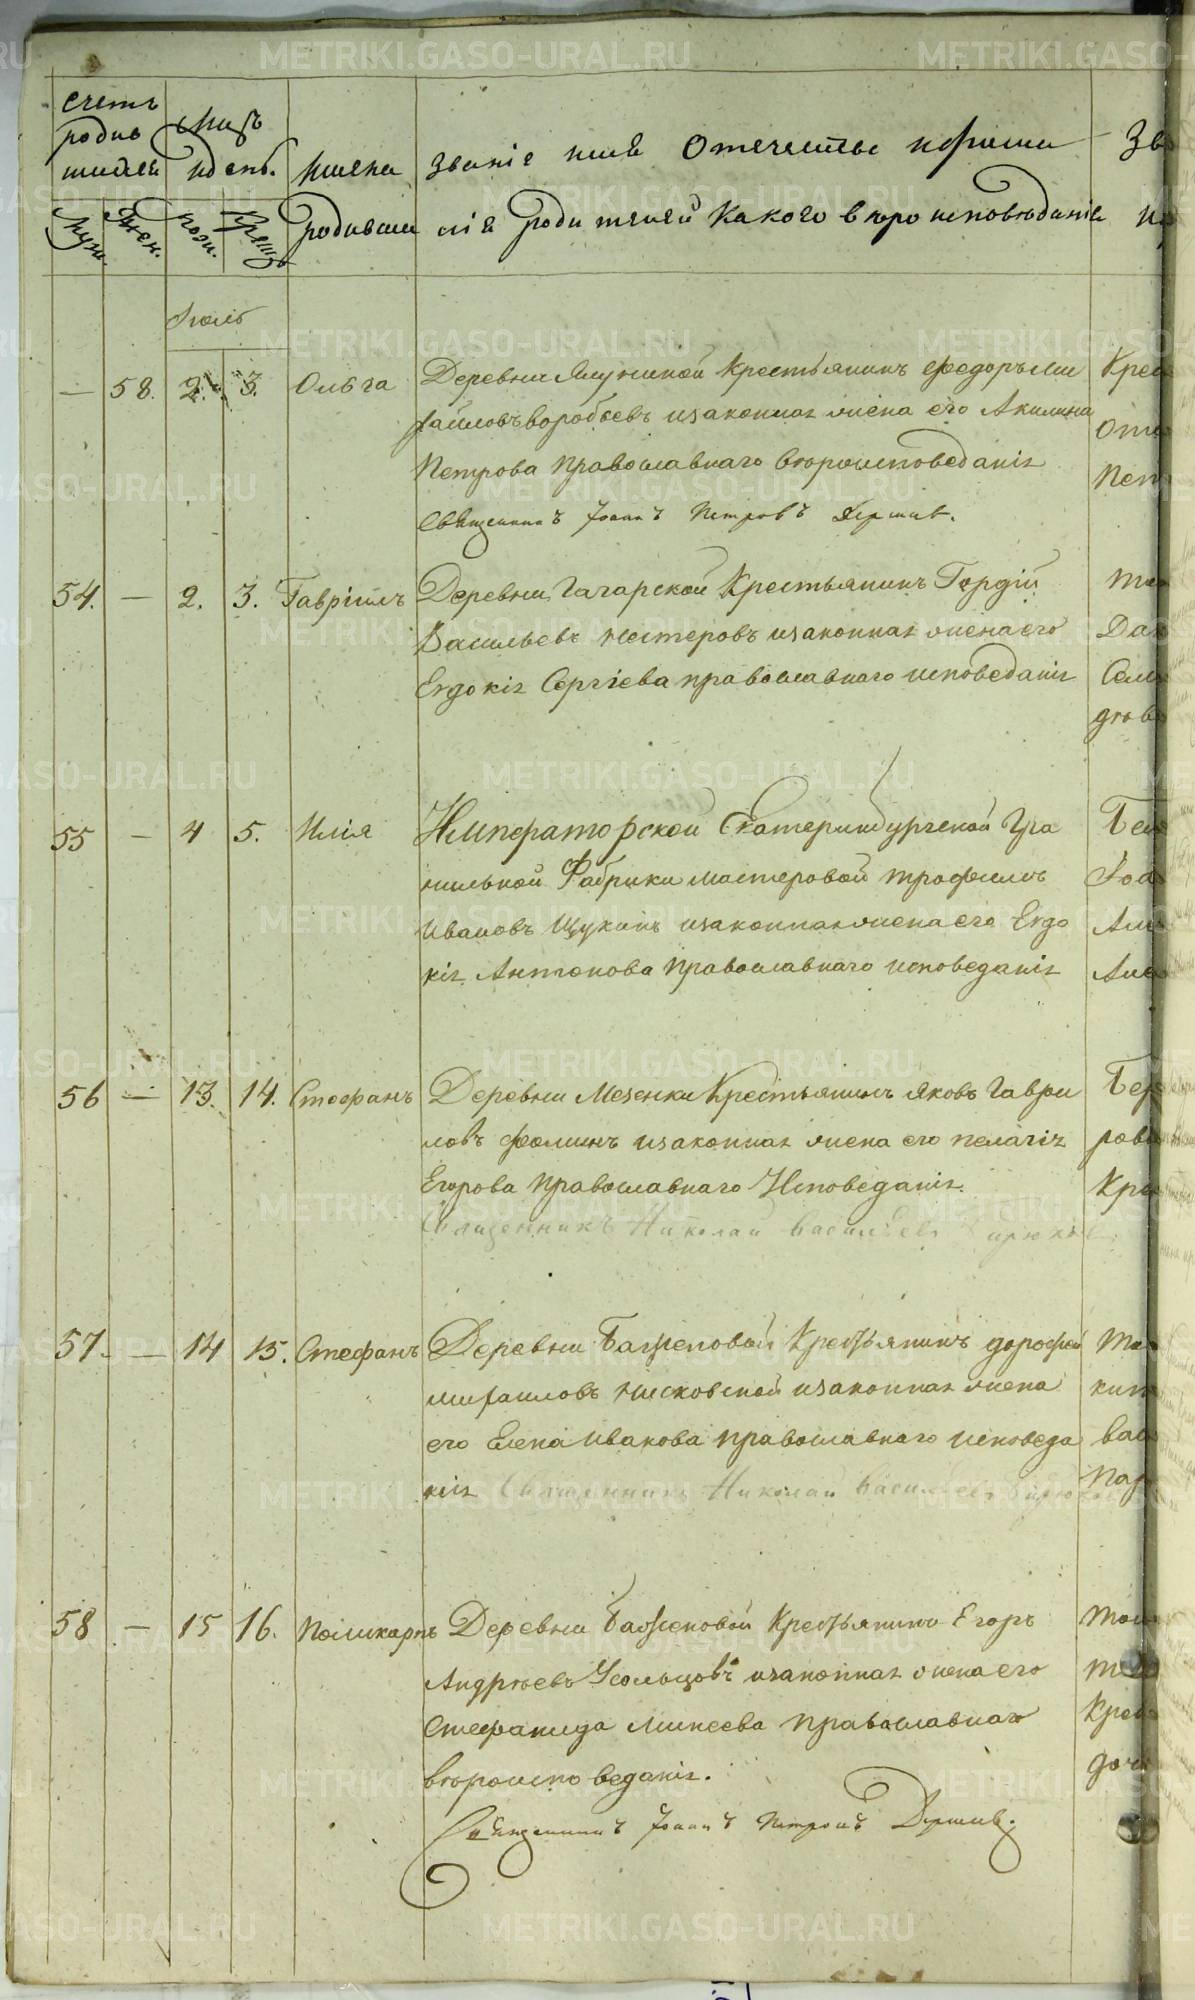 счетъ родив шихся
мҍсяцъ и день.
Имена родившихся
званіе имя Отечество и фамилія родителей какого вѣроисповѣданія
Муж. Жен. рож. Крещ.
Іюль
— 58. 2. 3. Ольга Деревни Крестьянинъ Федоръ Ми
хайловъ воробьевъ изаконная жена его Акилина
Петрова Православнаго вѣроисповеданія
Священникъ Іоаннъ Петровъ
54. — 2. 3. Гавріилъ Деревни Гагарской Крестьянинъ Гордій
Васильевъ Нестеровъ изаконная жена его
Евдокія Сергіева православнаго исповеданія
55 — 4 5. Илія Императорской Екатеринбургской Гра
нильной Фабрики мастеровой трофимъ
Ивановъ Щукинъ изаконная жена его Евдо
кія Антонова Православнаго исповеданія
56 — 13. 14. Стефанъ Деревни Мезенки Крестьянинъ яковъ Гаври
ловъ фоминъ изаконная жена его пелагія
Егорова Православнаго Исповеданія.
Священникъ Николай Васильевъ Бирюковъ
57. — 14 15. Стефанъ Деревни Баженовой Крестьянинъ дорофей
михаиловъ изаконная жена
его Елена Иванова православнаго исповеда
нія Священникъ Николай Васильевъ Бирюковъ
58 — 15 16. Поликарпъ Деревни Баженовой Крестьянинъ Егоръ
Андрѣевъ Усольцовъ изаконная жена его
Стефанида Минеева Православнаго
вѣроисповеданія.
Священникъ Іоаннъ Петровъ
METRIKI.GASO-URAL.RU